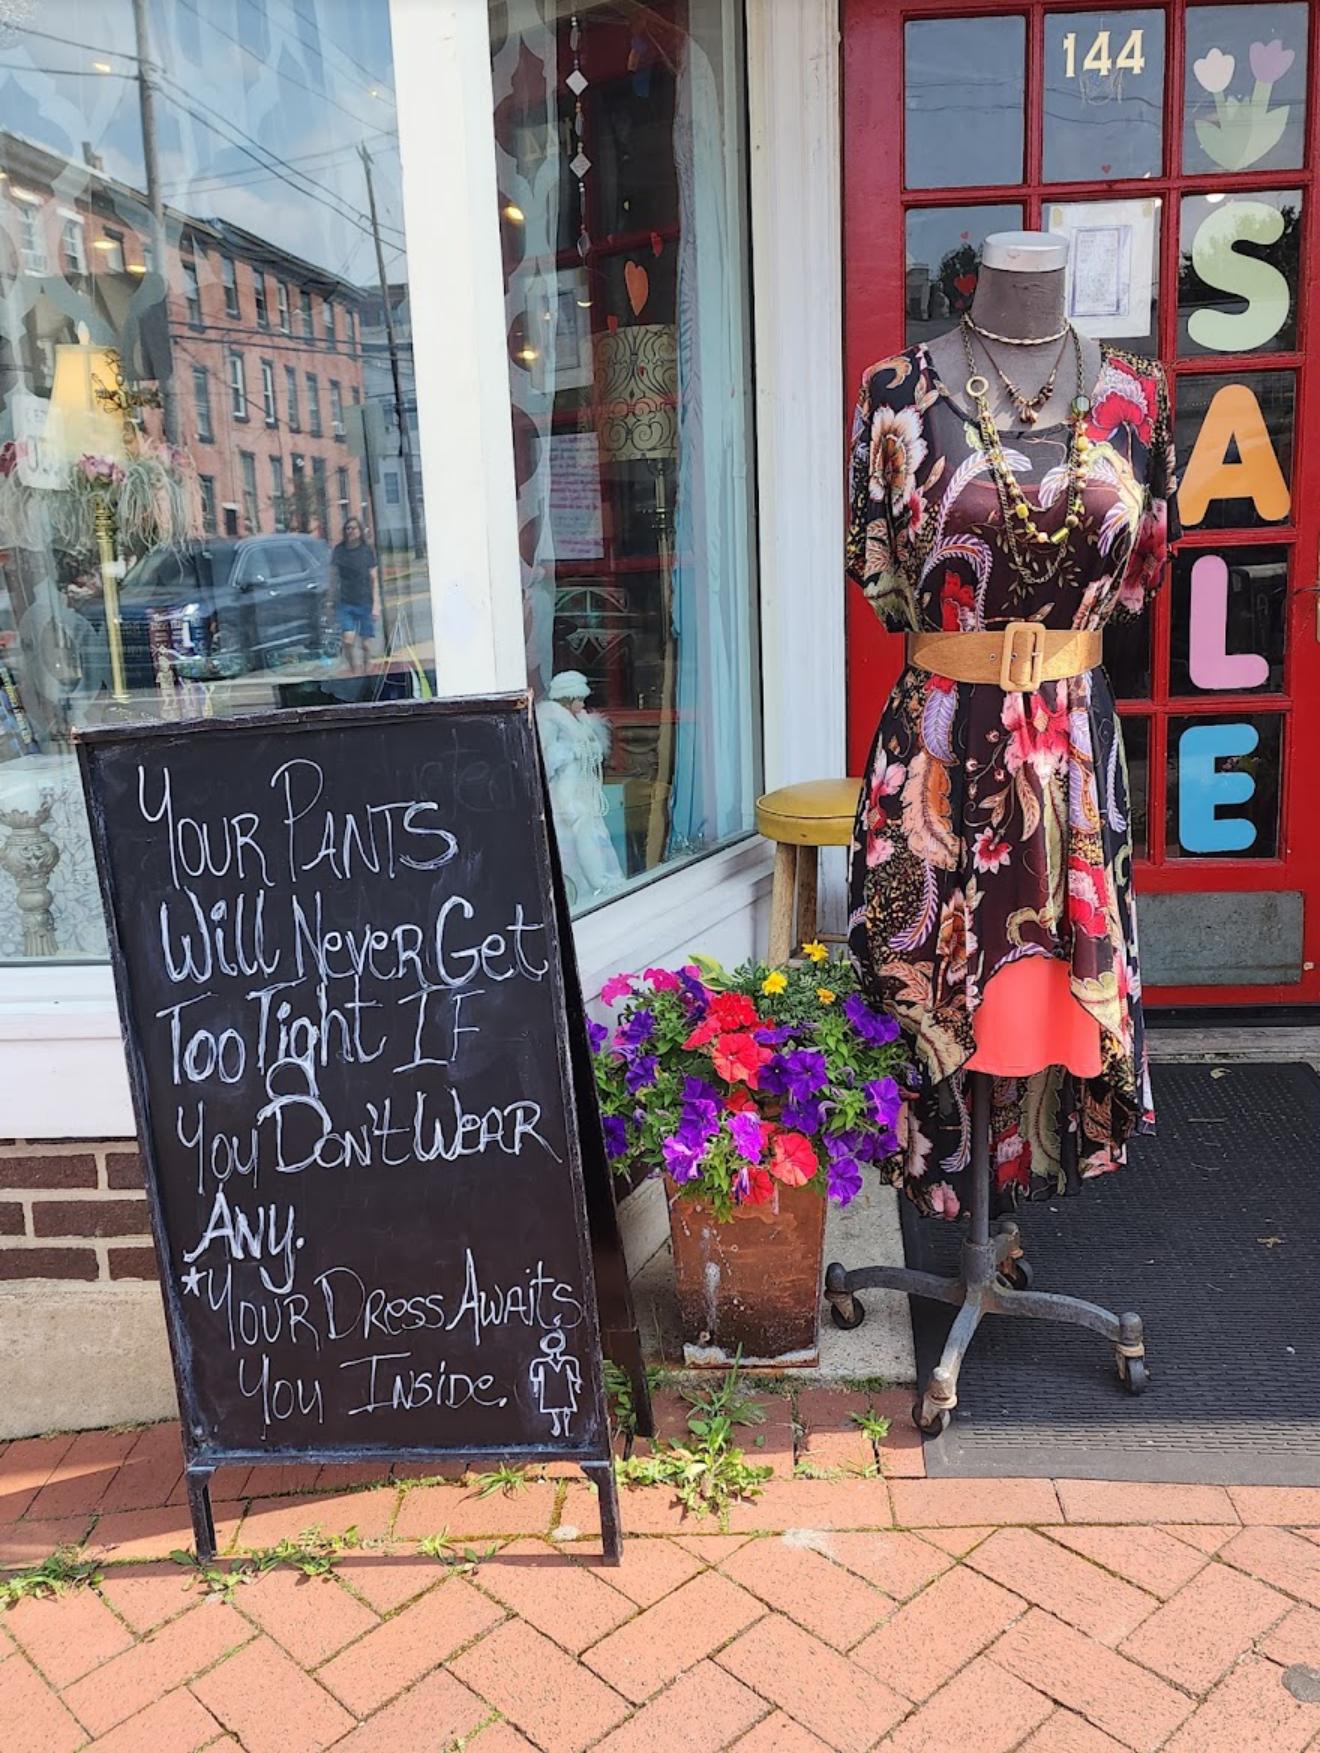 144
SALE
Your Pants
Will Never Get
Too Tight IF
You Don't Wear
Any.
*Your Dress Awaits
You Inside.